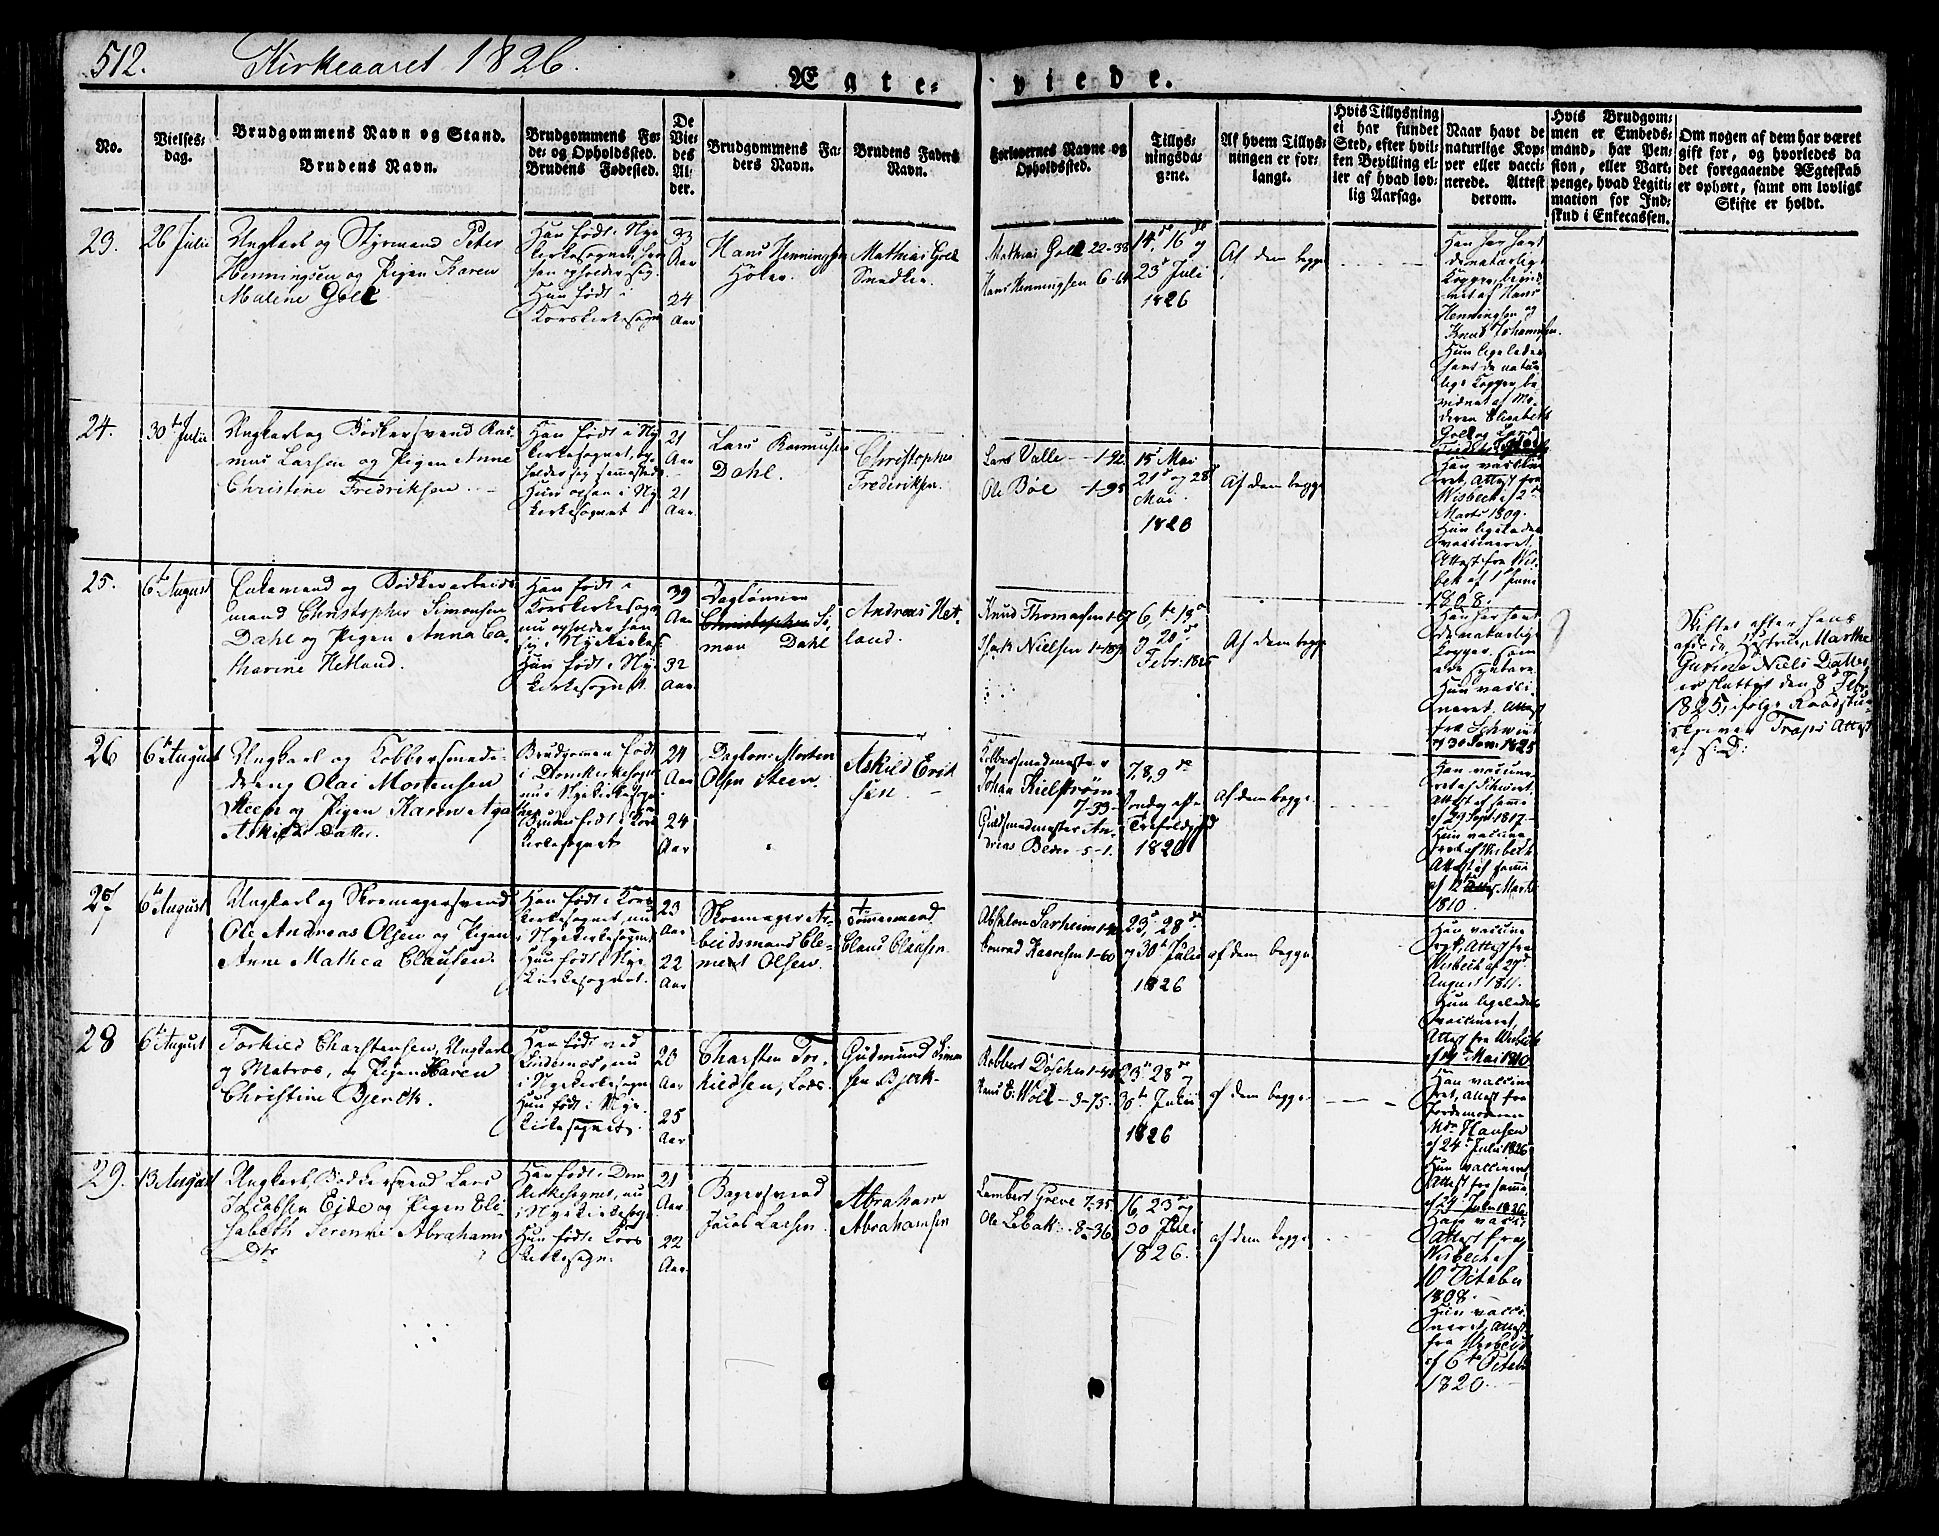 512. Kirkeaaret 1826.
Ægte- viede.
No.
Vielses-
dag.
Brudgommens Navn og Stand.
Brudens Navn.
Brudgommens Fø-
de- og Opholdssted.
Brudens Fødested.
De
Vie-
des
Al-
der.
Brudgommens Fa-
ders Navn.
Brudens Faders
Navn.
Forlovernes Navne og
Opholdssted.
Tillys-
ningsda-
gene.
Af hvem Tillys-
ningen er for-
langt.
Hvis Tillysning
ei har fundet
Sted, efter hvil-
ken Bevilling el-
ler af hvad lov-
lig Aarsag.
Naar havt de
naturlige Kop-
per eller vacci-
nerede. Attest
derom.
Hvis Brudgom-
men er Embeds-
mand, har Pen-
sion, eller Vart-
penge, hvad Legiti-
mation for Ind-
skud i Enkecassen.
Om nogen af dem har været
gift før, og hvorledes da
det foregaaende Ægteskab
er ophørt, samt om lovligt
Skifte er holdt.
23.
26 Julii
Ungkarl og Styrmand Peter
Henningsen og Pigen Karen
Malene Goll
Han født i Nye
Kirkesognet, hvor
han opholder sig.
Hun født i
Korskirkesogn
33
Aar
24
Aar
Hans Henningsen
Mathias Goll
Snedker.
Mathias Goll 22-38
Hans Henningsen 6-64
14de, 16de og
23de Juli
1826
Af dem begge
Han har havt
de naturlige
Kopper, bevid-
net af Hans
Henningsen og
Knud Johannesen.
Hun ligeledes
havt de natur-
lige Kopper, be-
vidnet af Mo-
deren Elisabeth
24.
30te Julii
Ungkarl og Bødkersvend Ras-
mus Larsen og Pigen Anne
Christine Fredriksen
Han født i Ny-
kirkesognet, op-
holder sig sammesteds
Hun ogsaa i Ny-
kirkesognet
21
Aar
21
Aar
Lars Rasmusen
Dahl.
Christopher
Frederiksen.
Lars Valle - 1-92
Ole Bøe -1-98
15de Mai
21de og 28de
Mai
1826
Af dem begge
Han vacci-
neret, Attest fra
Wisbech af 2den
Marts 1809.
Hun ligeledes
vaccineret,
Attest fra Wis-
bech af 1 Juni
1808.
25.
6te August
Enkemand og Bødkerarbeids-
mand Christopher Simonsen
Dahl og Pigen Anna Ca-
tharine Hetland.
Han født i
Korskirkesogn
nu opholder han
sig i Nyekirkes.
Hun født i Nye
Kirkesognet.
39
Aar
32
Aar
Daglønner
Christopher Si-
mon Dahl
Andreas Het-
land.
Knud Thomasen 1-67
Isak Nielsen 1-189
6te, 13de
og 20de
Febr: 1825
Af dem begge
Han har havt
de naturlige
Kopper
Hun vacci-
neret. Attest
fra Schwindt
af 30 Jan: 1825
Skiftet efter hans
afdøde Hustrue, Marthe
Gurine Niels Datter
er sluttet den 8de Febr
1825, ifølge Raadstue-
skriver Traps Attest
af S.D:
26
6te August
Ungkarl og Kobbersmede-
dreng Olai Mortensen
Steen og Pigen Karen Aga-
the Askilds Datter.
Brudgommen født
i Domkirkesogn
nu i Nyekirkesogn
Bruden født i Kors
kirkesognet
24
Aar
24
Aar
Dagløn: Morten
Olsen Steen.
Askild Erik-
sen.
Kobbersmedmester
Johan Kielstrøm
7-33-
Guldsmedmester An-
dreas Beder -5-1.
7, 8, 9de
Søndag efter
Trefoldighed
1826
Af dem begge
Han vaccine-
ret af Schwindt.
Attest af samme
af 27 Sept 1817-
Hun vaccine-
ret af Wisbech
Attest af samme
af 12te Marts
1810.
27
6te August
Ungkarl og Skomagersvend
Ole Andreas Olsen og Pigen
Anne Mathea Clausen.
Han født i Kors
kirkesognet, nu
i Nyekirkesognet
Hun født i Nye-
kirkesognet.
23
Aar
22
Aar
Skomager Ar-
beidsmand Cle-
ment Olsen.
Tømmermand
Claus Clausen.
Absalon Sørheim
Konrad Kaaresen 1-60
23de, 28de
og 30te Julii
1826
af dem begge
Han vaccine-
ret, Attest fra
Wisbech af 27de
August 1811.
Hun ligeledes
vaccineret,
Attest fra Wisbech
af 14de Mai 1810
28
6te August
Torkild Charstensen, Ungkarl
og Matros, og Pigen Karen
Christine Bjerck.
Han født ved
Lindenæs, nu
i Nyekirkesogn
Hun født i Nye-
kirkesognet.
20
Aar
25
Aar
Charsten Tor-
kildsen, Lods.
Gudmund Simon-
sen Bjerk.
Robbert Døscher 1-48
Knud E. Wold -9-75.
23de 28de og
30te Julii
1826
af dem begge
Han vaccine-
ret, Attest fra
Jordemoderen
Md. Hansen
af 24de Julii 1826
Hun vaccineret
Attest fra samme
af 24 Julii 1826
29.
13 August
Ungkarl, Bødkersvend Lars
Jacobsen Eide og Pigen Eli-
sabeth Serenne Abrahams
Dtr
Han født i Dom-
kirkesognet, nu
i Nyekirkesogn
Hun født i Kors
kirkesogn.
21
Aar
22
Aar
Bagersvend
Jacob Larsen.
Abraham
Abrahamsen
Lambert Greve 7-35
Ole Lebak: -8-36
16, 23de og
30 Juli
1826.
af dem begge
Han vacci-
Attest fra
Wisbech af
10 October
1808.
Hun vacci-
neret, Attest
fra Wisbech
af 6te Octob:
1820.